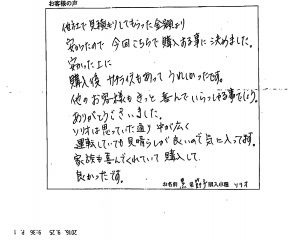 お客様の声
他社で見積もりしてもらった金額より
安かったので 今回こちらで購入する事に決めました。
安かった上に
購入後 もあって うれしかったです。
他のお客様もきっと喜んでいらっしゃる事でしょう。
ありがとうございました。
ソリオは思っていた通り 中が広く
運転していても見晴らしが良いので気に入ってます。
家族も喜んでくれていて購入して
良かったです。
お名前 購入車種 ソリオ
2016. 9.25 9:36 P. 1